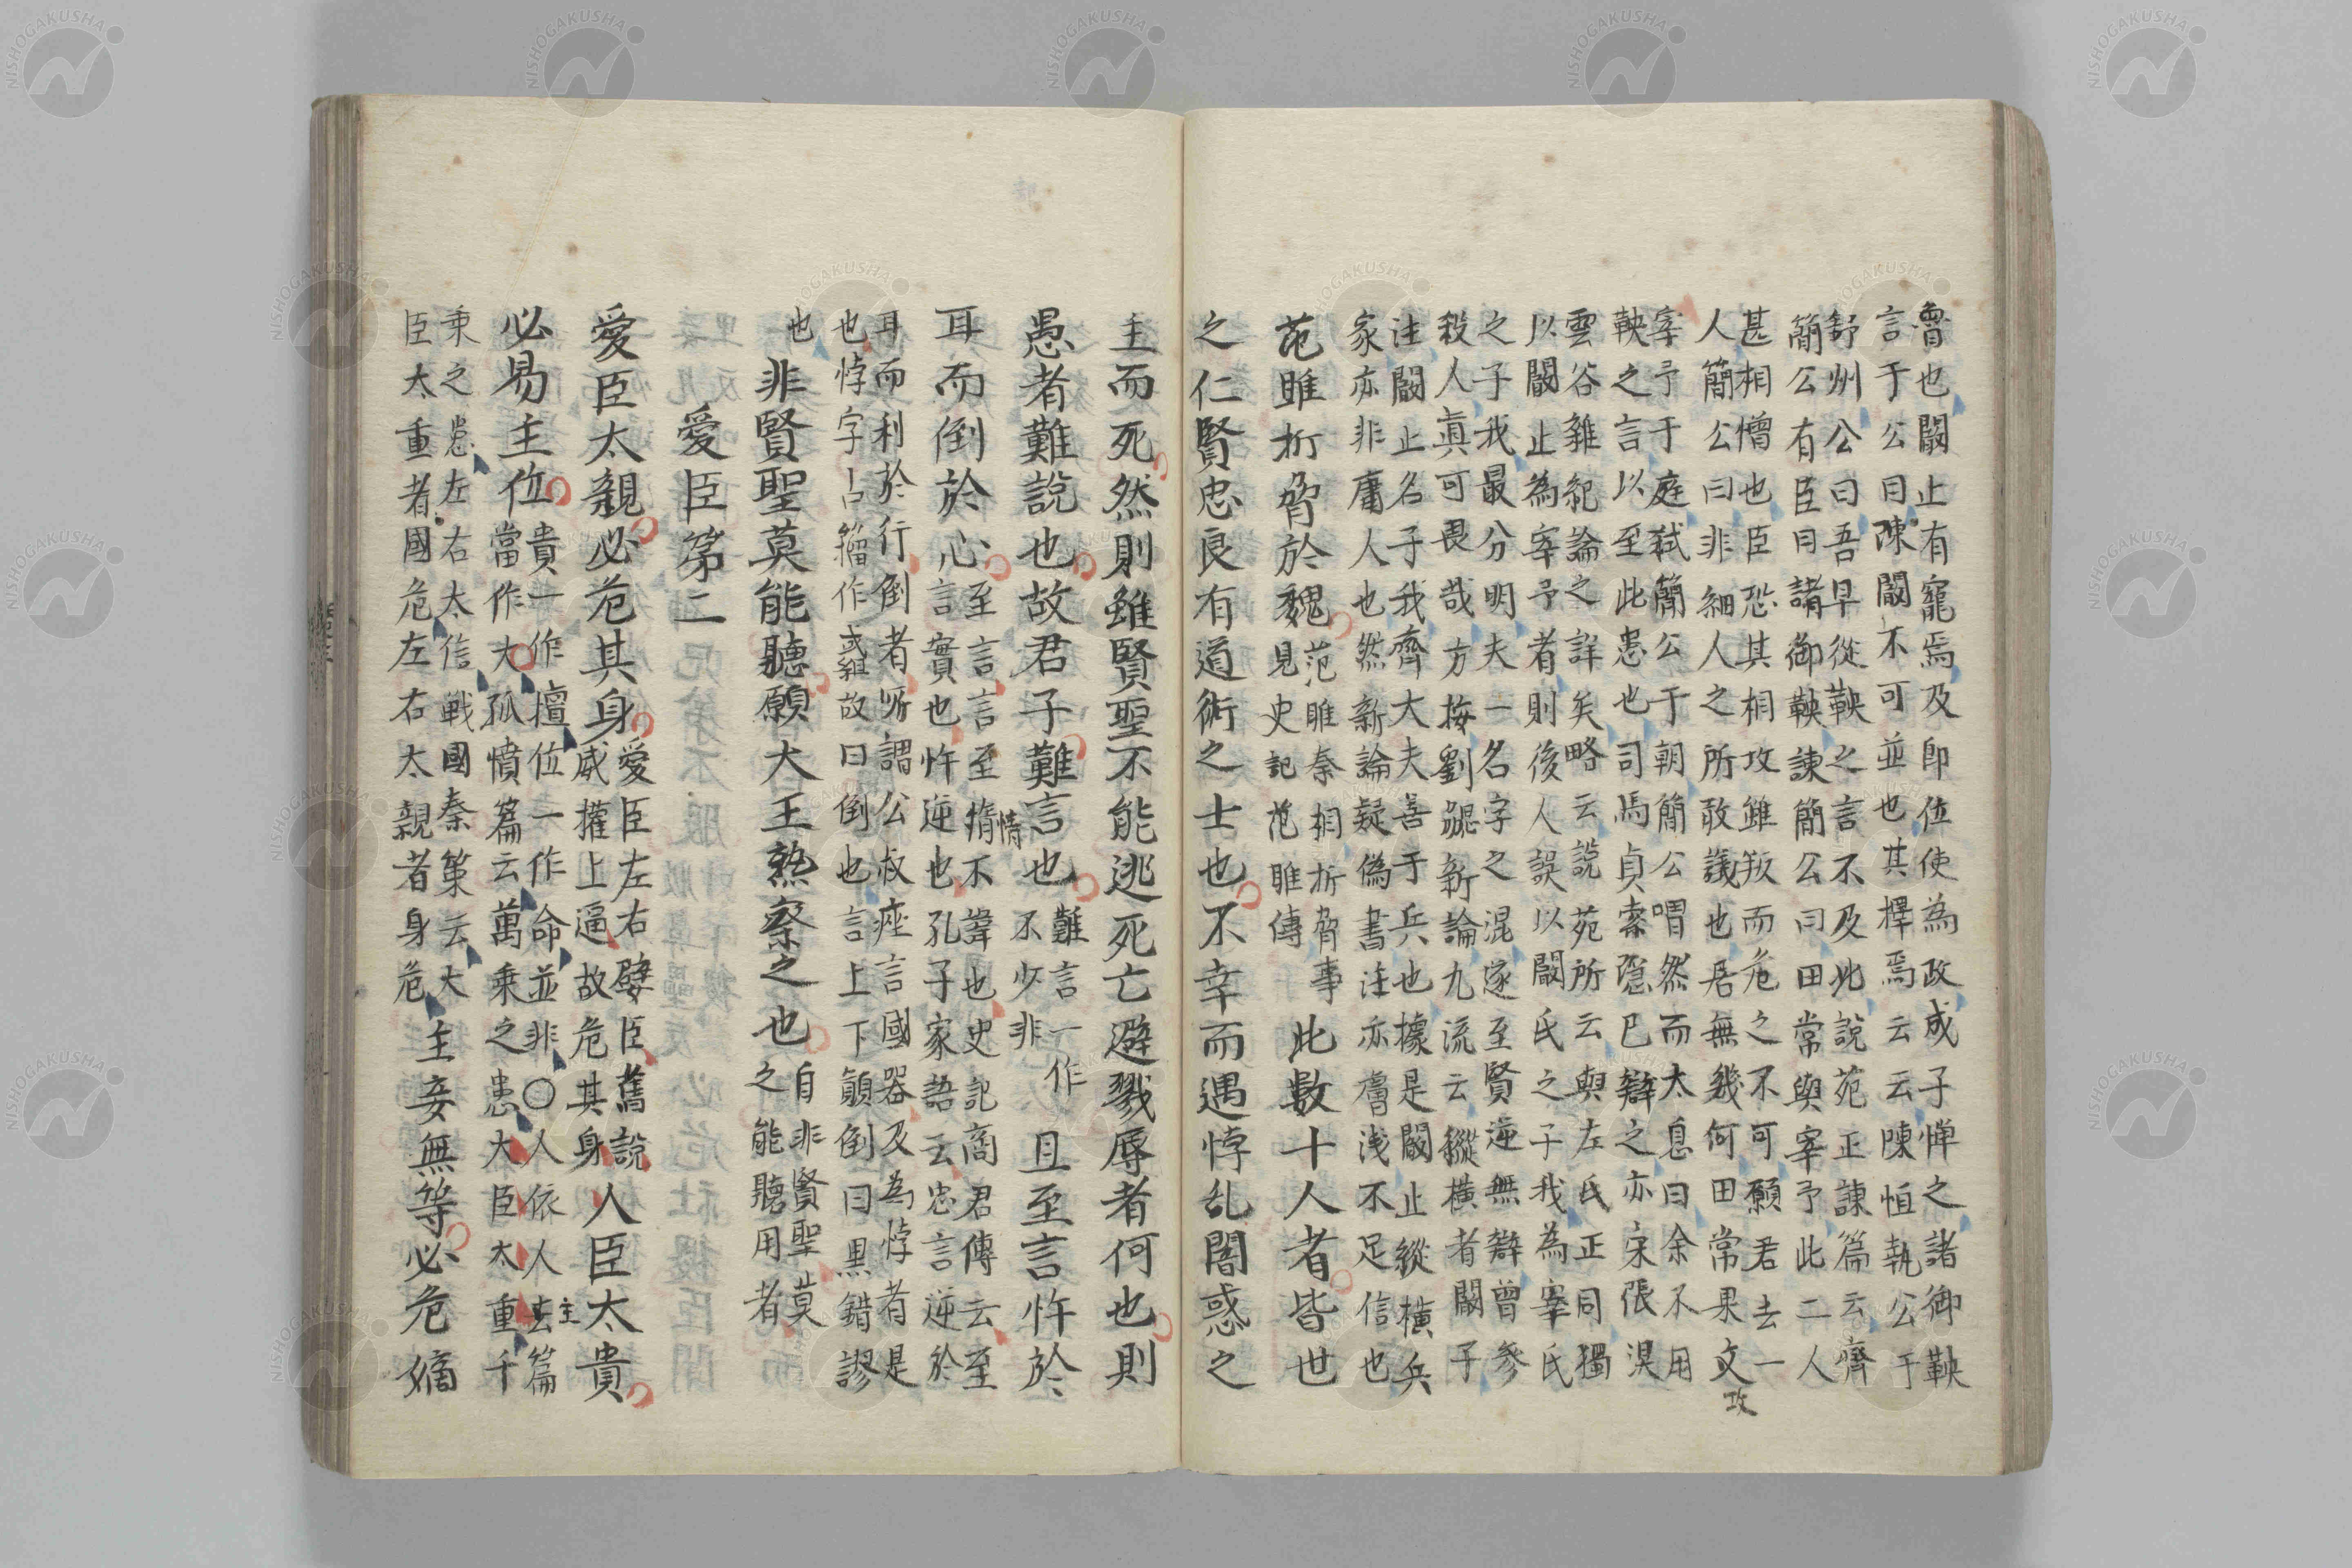 魯也闞止有寵焉及即位使為政成子憚之諸御鞅
言于公曰陳闞不可並也其擇焉云云陳恒執公于
舒州公曰吾早從鞅之言不及此説苑正諫篇云齊
簡公有臣曰諸御鞅諫簡公曰田常與宰予此二人
甚相憎也臣恐其相攻雖叛而危之不可願君去一
人簡公曰非細人之所敢議也居無幾何田常果文攻
宰予于庭弑簡公于朝簡公喟然而太息曰余不用
鞅之言以至此患也司馬貞索隱已辯之亦宋張淏
雲谷雜紀論之詳矣略云説苑所云與左氏正同獨
以闞止為宰予者則後人誤以闞氏之子我為宰氏
之子我最分明夫一名字之混遂至賢逆無辯曾參
殺人真可畏哉方按劉勰新論九流云縱橫者闞子
注闞止名子我齊大夫善于兵也據是闞止縱橫兵
家亦非庸人也然新論疑偽書注亦膚浅不足信也
范雎折脅於魏
范雎秦相折脅事
見史記范雎傳
此數十人者皆世
之仁賢忠良有道術之士也不幸而遇悖乱闇惑之
主而死然則雖賢聖不能逃死亡避戮辱者何也則
愚者難説也故君子難言也
難言一作
不少非
且至言忤於
耳而倒於心
至言言至猾情不諱也史記商君傳云至
言實也忤逆也孔子家語云忠言逆於
耳而利於行倒者所謂公叔痤言國器及為悖者是
也悖字占籀作䜋故曰倒也言上下顛倒曰黒錯謬
也
非賢聖莫能聽願大王熟察之也
自非賢聖莫
之能聽用者
愛臣第二
愛臣太親必危其身
愛臣左右嬖臣舊説
威權上逼故危其身
人臣太貴
必易主位
貴一作擅位一作命並非○人依人主去篇
當作大孤憤篇云萬乘之患大臣太重千
乘之患左右太信戰國秦策云大
臣太重者國危左右太親者身危
主妾無等必危嫡